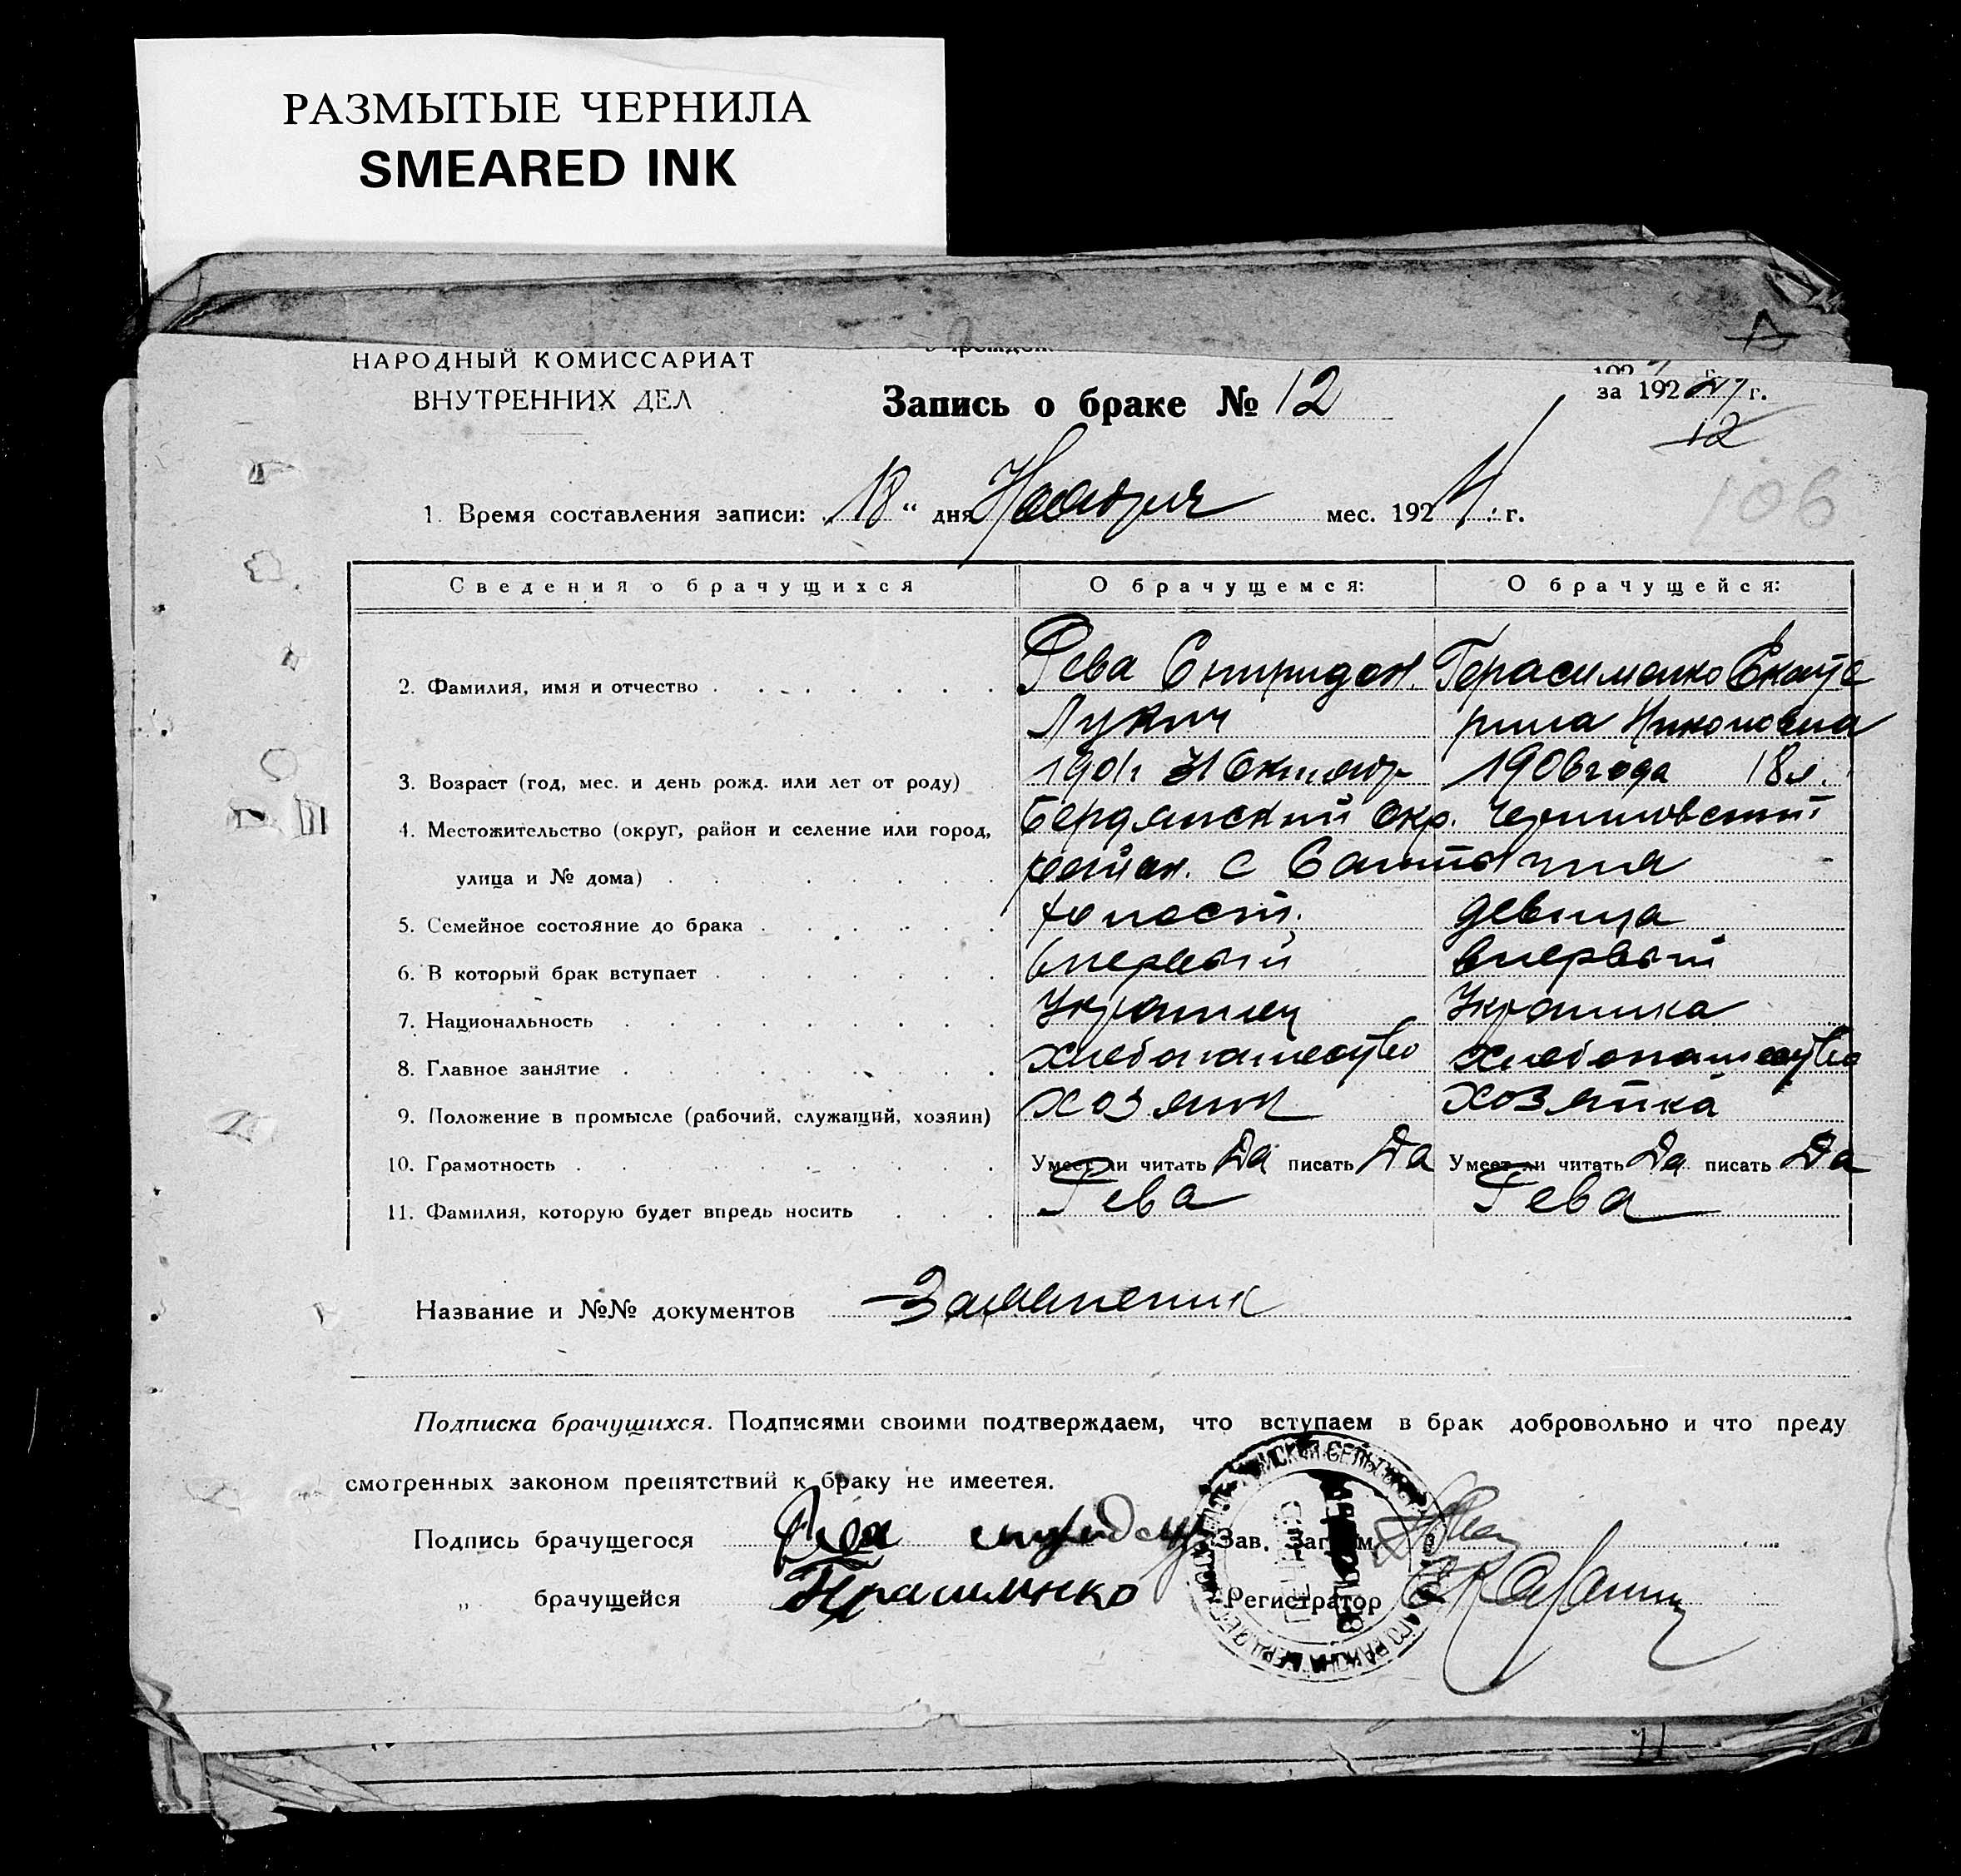 РАЗМЫТЫЕ ЧЕРНИЛА
SMEARED INK
НАРОДНЫЙ КОМИССАРИАТ
ВНУТРЕННИХ ДЕЛ
Запись о браке № 12
за 1924 г.
12
106
1. Время составления записи: 18 " дня Ноября мес. 1924 г.
Сведения о брачущихся О брачущемся: О брачущейся:
2. Фамилия, имя и отчество Рева Спиридон Герасименко Екате
Лукич рина Никоновна
3. Возраст (год, мес. и день рожд. или лет от роду) 1901г Октяб 1906 года 18 л.
4. Местожительство (округ, район и селение или город, Бердянский окр. Черниговский
улица и № дома) район. с
5. Семейное состояние до брака холост. девица
6. В который брак вступает впервый впервый
7. Национальность Украинец Украинка
8. Главное занятие хлебопашество хлебопашество
9. Положение в промысле (рабочий, служащий, хозяин) хозяин хозяйка
10. Грамотность Умеет ли читать Да писать Да Умеет ли читать Да писать Да
11. Фамилия, которую будет впредь носить Рева Рева
Название и №№ документов Заявление
Подписка брачущихся. Подписями своими подтверждаем, что вступаем в брак добровольно и что преду
смотренных законом препятствий к браку не имеется.
Подпись брачущегося Рева Зав. Загсом
" брачущейся Герасименко Регистратор
11